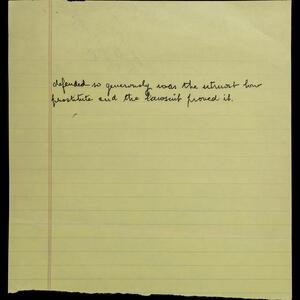 defended so generously was the utmost low
prostitute and the lawsuit proved it.